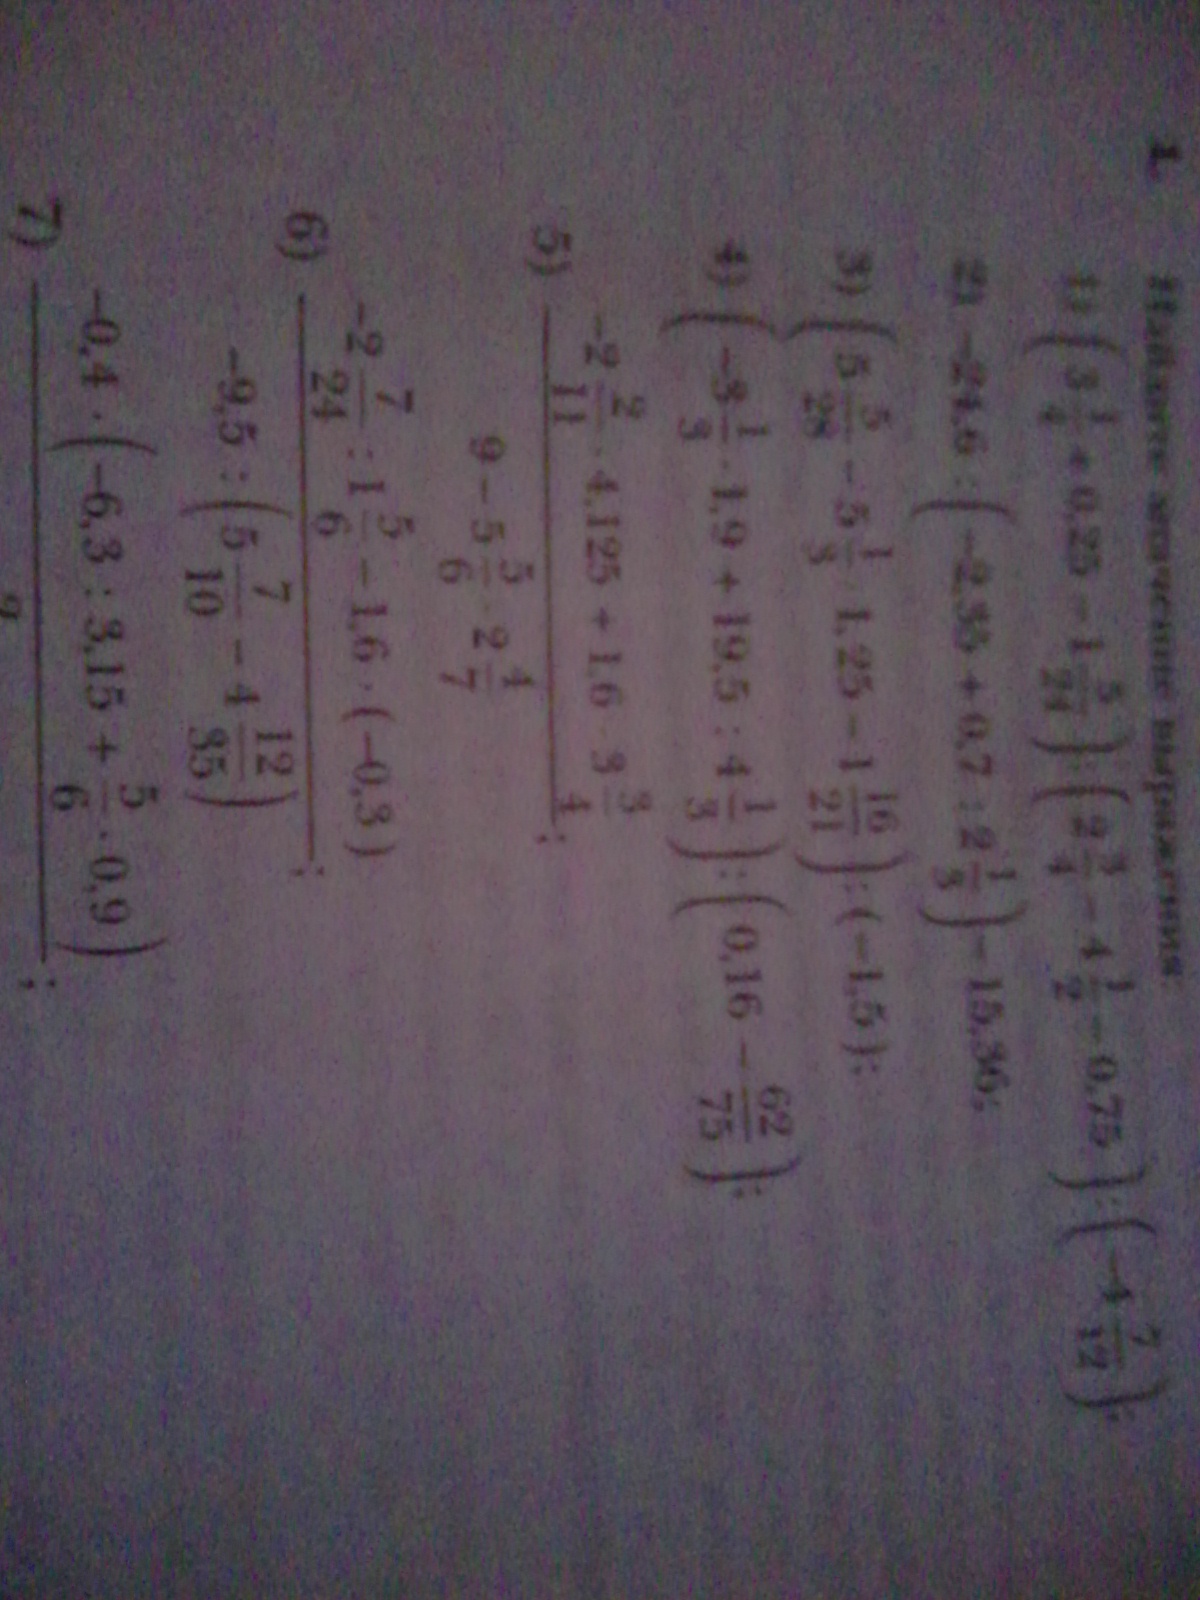 1. Найдите значение выражения:
1) (3 1/4 + 0,25 − 1 5/24) : (2 3/4 − 4 1/2 − 0,75) : (−4 7/12);
2) −24,6 : (−2,35 + 0,7 : 2 1/3) − 15,36;
3) (5 5/28 − 5 1/3 · 1,25 − 1 16/21) : (−1,5);
4) (−3 1/3 · 1,9 + 19,5 : 4 1/3) : (0,16 − 62/75);
−2 2/11 · 4,125 + 1,6 · 3 3/4
5) ;
9 − 5 5/6 · 2 4/7
−2 7/24 : 1 5/6 − 1,6 · (−0,3)
6) ;
−9,5 : (5 7/10 − 4 12/35)
−0,4 · (−6,3 : 3,15 + 5/6 · 0,9)
7) ;